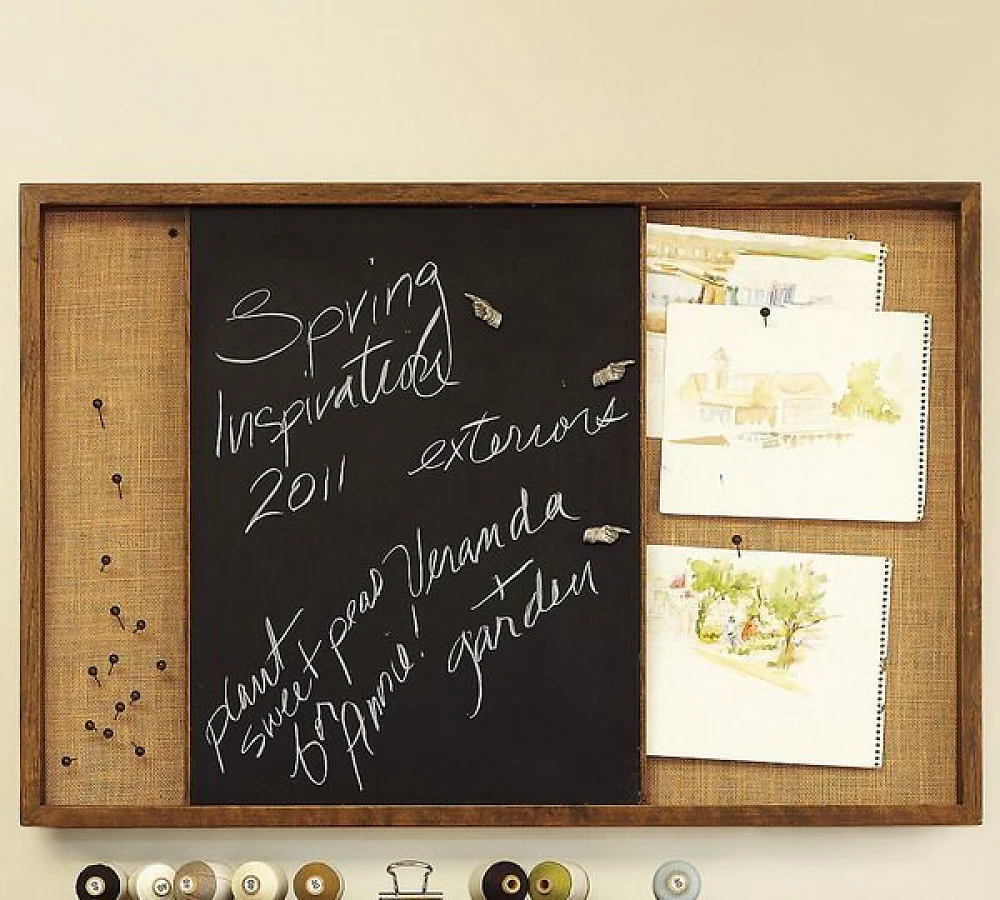 Spring
Inspiration
2011
exteriors
Veranda
garden
plant
sweet peas
for Annie!